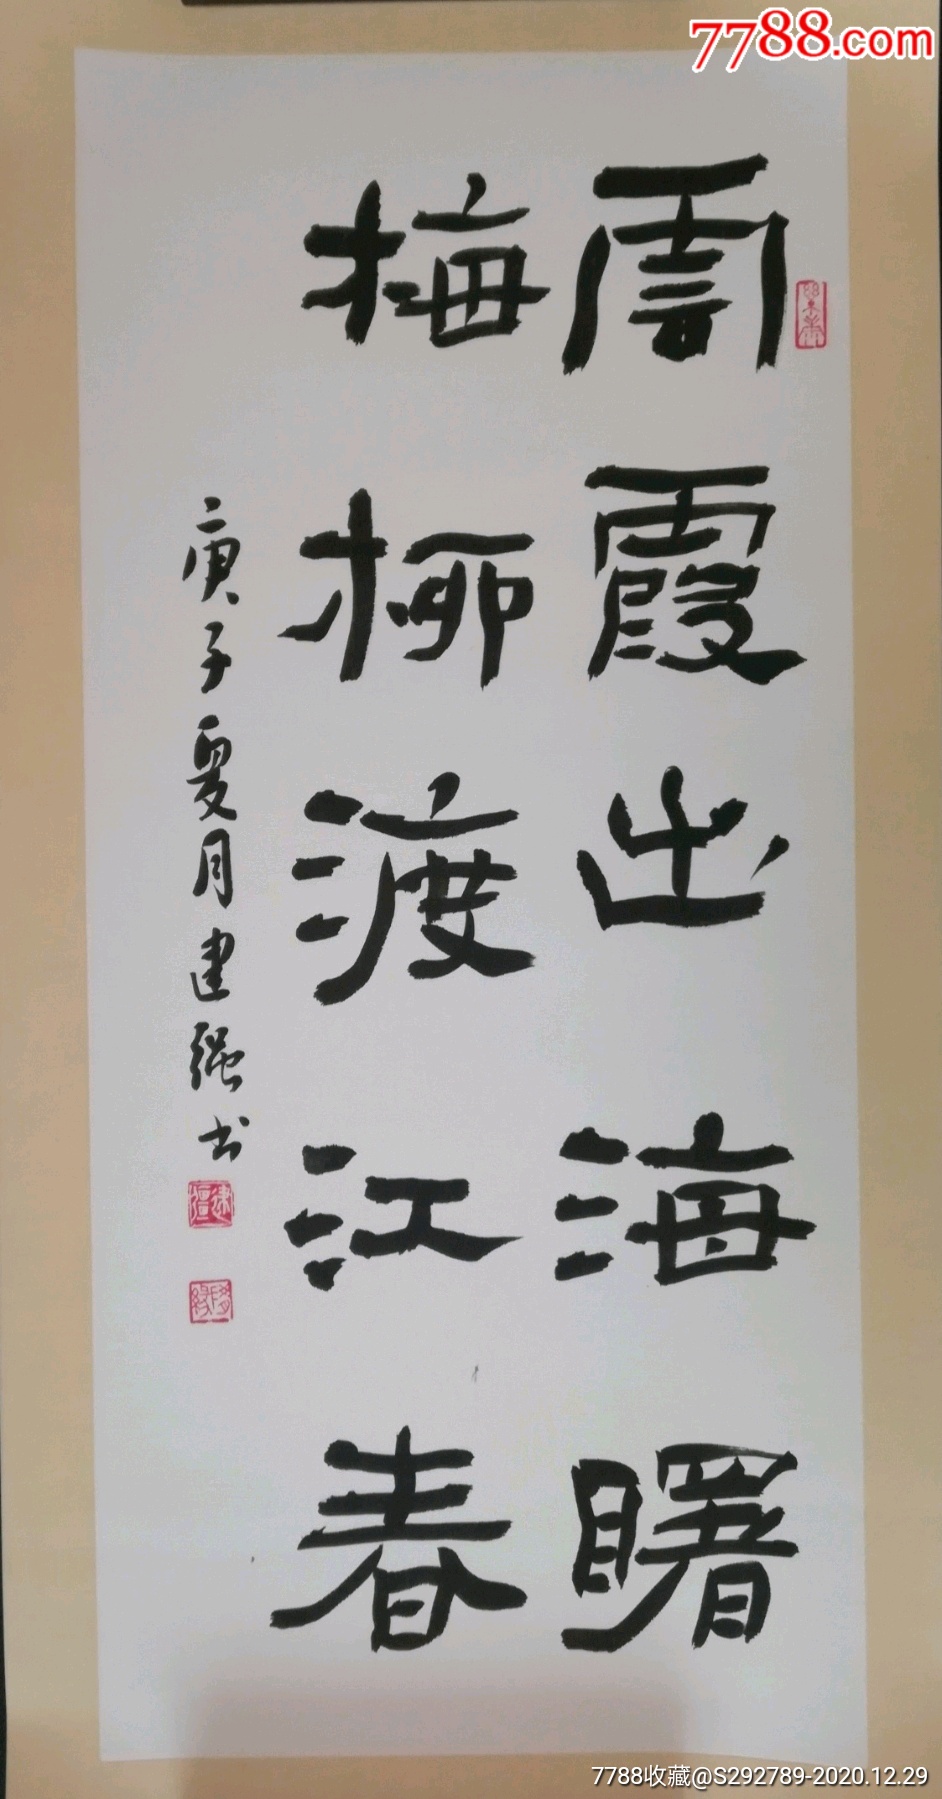 7788.com
雲霞出海曙
梅柳渡江春
庚子夏月建强书
7788收藏@S292789-2020.12.29